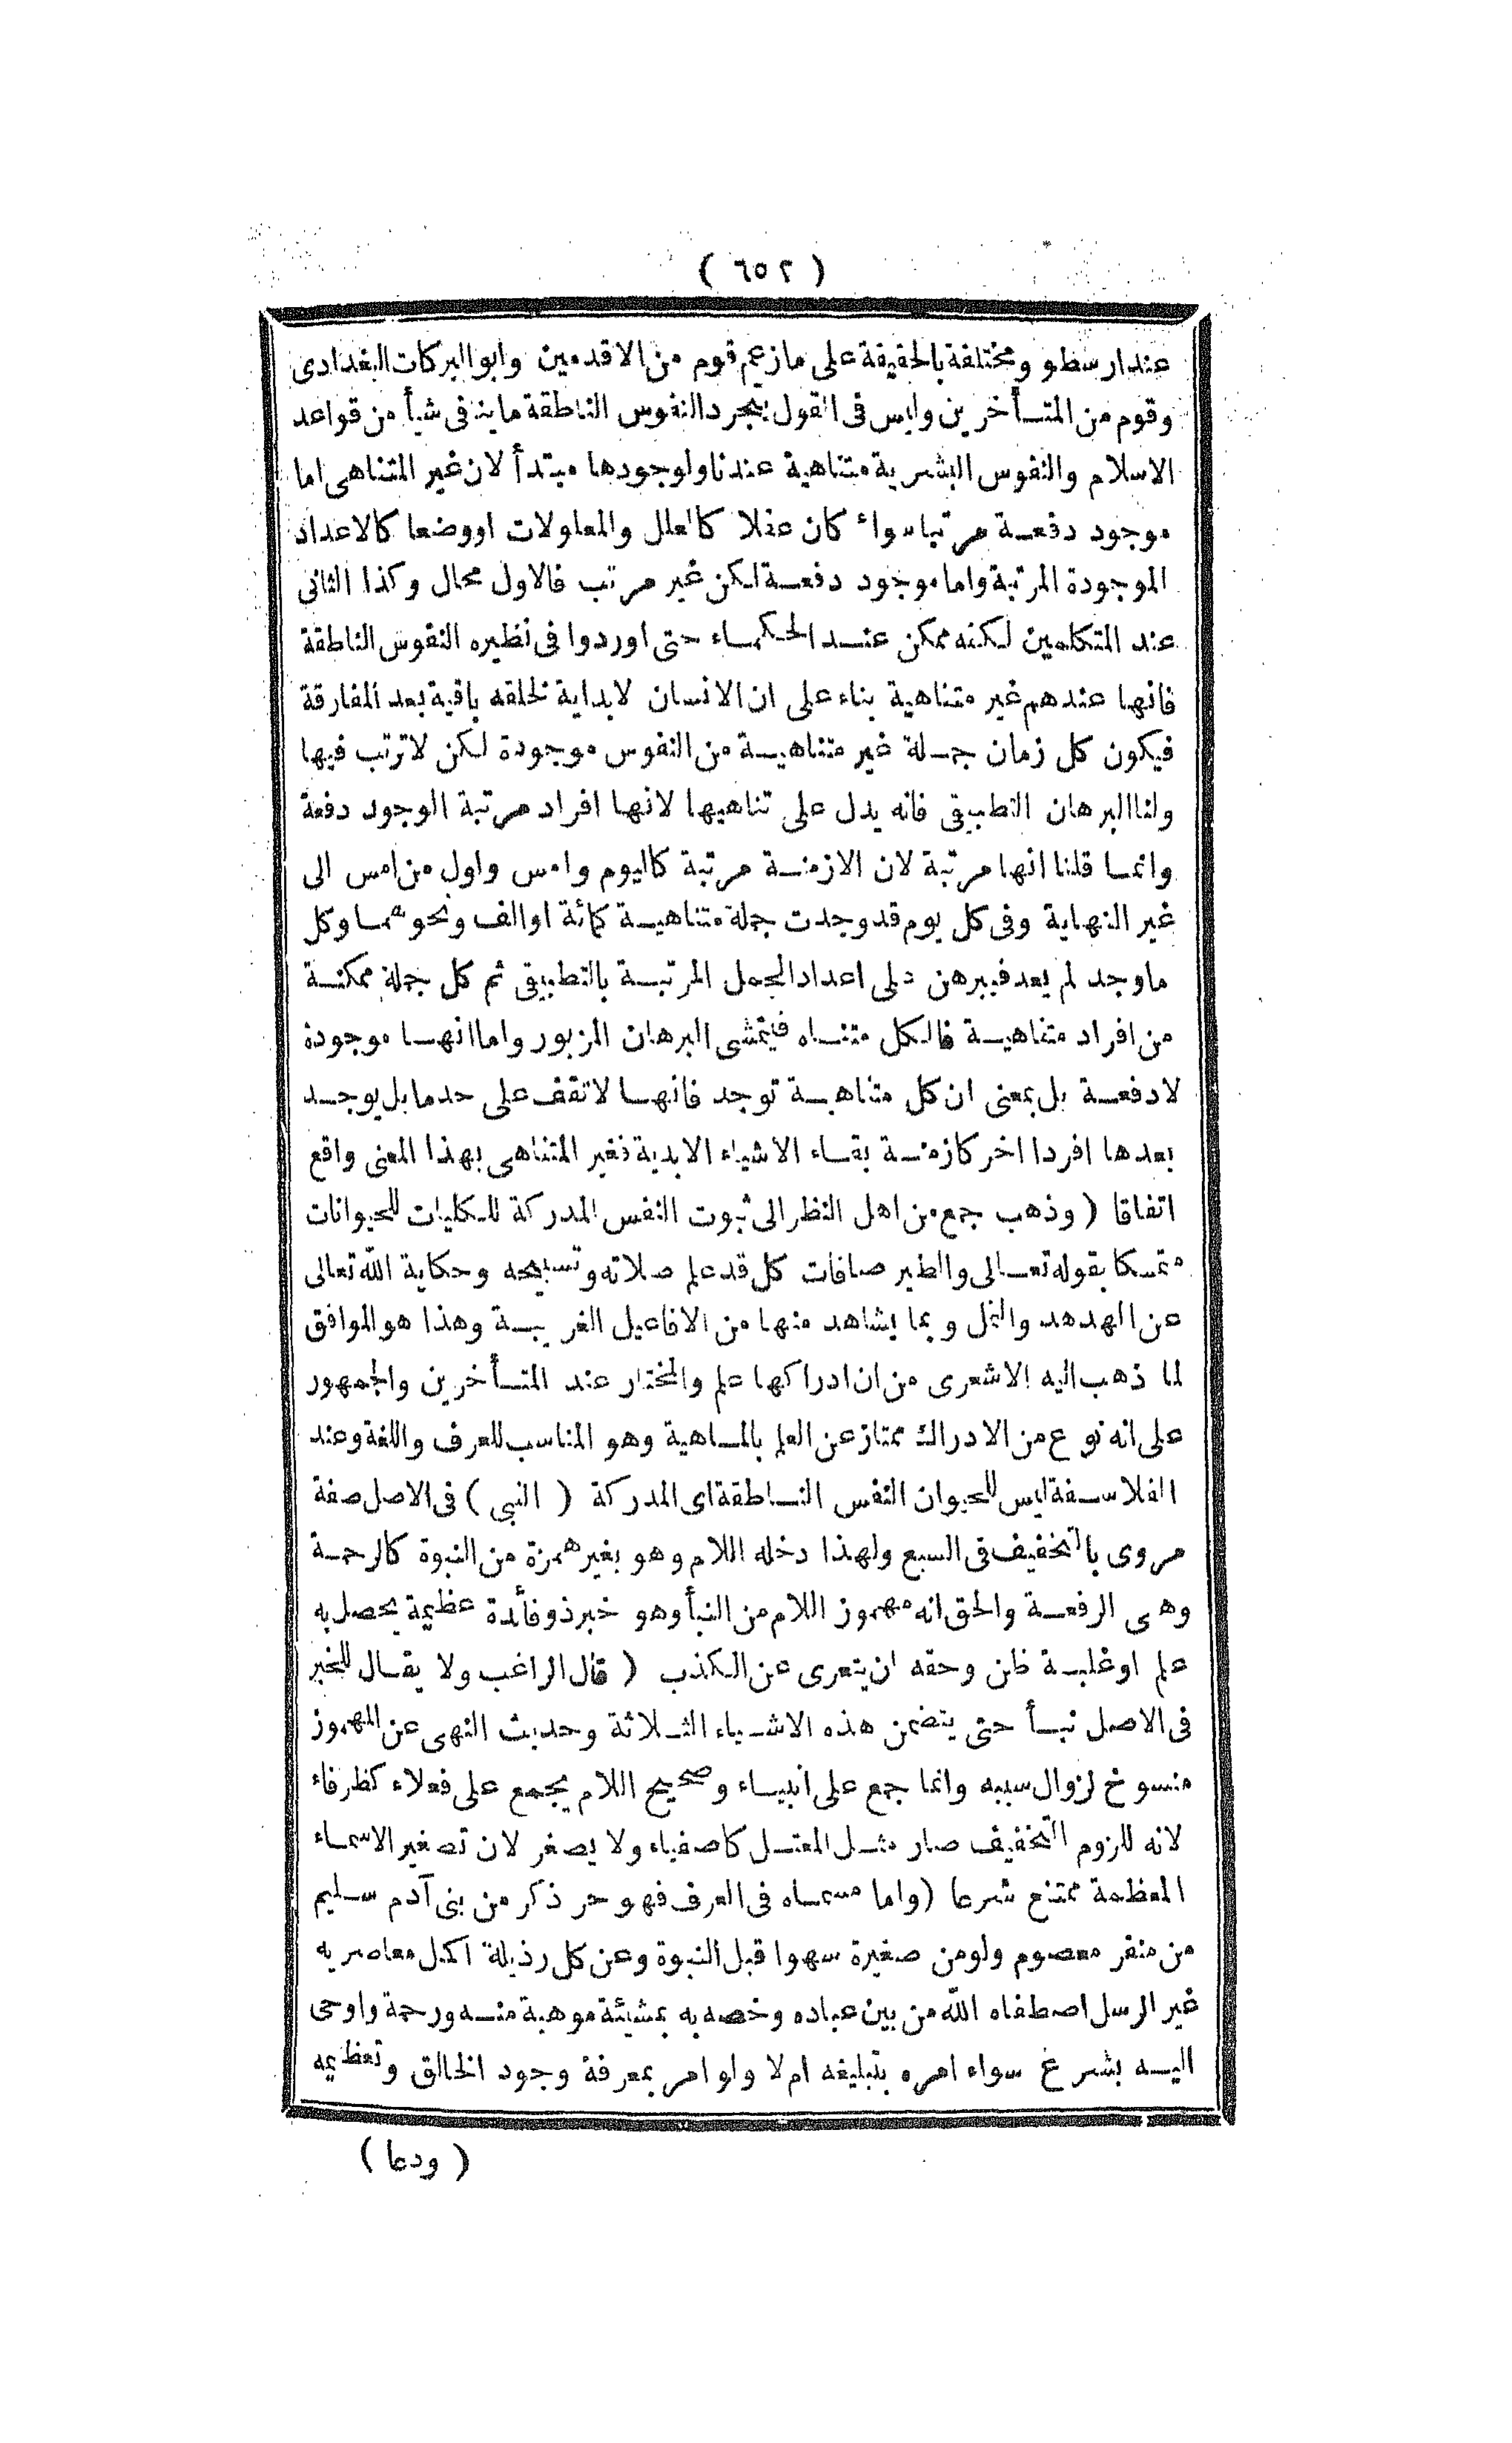 ( ٦٥٢ )
عند ارسطو ومختلفة بالحقيقة على مازعم قوم من الاقدمين وابوالبركات البغدادى
وقوم من المتأخرين وليس فى القول بتجرد النفوس الناطقة ماينافى شيأ من قواعد
الاسلام والنفوس البشرية متناهية عندنا ولوجودها مبتدأ لان غير المتناهى اما
موجود دفعة مرتبا سواء كان عقلا كالعلل والمعلولات او وضعا كالاعداد
الموجودة المرتبة واما موجود دفعة لكن غير مرتب فالاول محال وكذا الثانى
عند المتكلمين لكنه ممكن عند الحكماء حتى اوردوا فى نظيره النفوس الناطقة
فانها عندهم غير متناهية بناء على ان الانسان لابداية لخلقه باقية بعد المفارقة
فيكون كل زمان جملة غير متناهية من النفوس موجودة لكن لاترتب فيها
ولنا البرهان التطبيقى فانه يدل على تناهيها لانها افراد مرتبة الوجود دفعة
وانما قلنا انها مرتبة لان الازمنة مرتبة كاليوم وامس واول من امس الى
غير النهاية وفى كل يوم قد وجدت جملة متناهية كمائة او الف ونحوهما وكل
ماوجد لم يعد فيبرهن على اعداد الجمل المرتبة بالتطبيقى ثم كل جملة ممكنة
من افراد متناهية فالكل متناه فيتمشى البرهان المزبور واما انها موجودة
لا دفعة بل بمعنى ان كل متناهية توجد فانها لاتقف على حد ما بل يوجد
بعدها افردا اخر كازمنة بقاء الاشياء الابدية فغير المتناهى بهذا المعنى واقع
اتفاقا ( وذهب جمع من اهل النظر الى ثبوت النفس المدركة للكليات للحيوانات
متمسكا بقوله تعالى والطير صافات كل قد علم صلاته وتسبيحه وحكاية الله تعالى
عن الهدهد والنمل و بما يشاهد منها من الافاعيل الغريبة وهذا هو الموافق
لما ذهب اليه الاشعرى من ان ادراكها علم والمختار عند المتأخرين والجمهور
على انه نوع من الادراك ممتاز عن العلم بالماهية وهو المناسب للعرف واللغة وعند
الفلاسفة ليس للحيوان النفس الناطقة اى المدركة ( النبى ) فى الاصل صفة
مروى بالتخفيف فى السبع ولهذا دخله اللام وهو بغير همزة من النبوة كالرحمة
وهى الرفعة والحق انه مهموز اللام من النبأ وهو خبر ذو فائدة عظيمة يحصل به
علم او غلبة ظن وحقه ان يتعرى عن الكذب ( قال الراغب ولا يقال للخبر
فى الاصل نبأ حتى يتضمن هذه الاشياء الثلاثة وحديث النهى عن المهموز
منسوخ لزوال سببه وانما جمع على انبياء وصحيح اللام يجمع على فعلاء كظرفاء
لانه للزوم التخفيف صار مثل المعتل كاصفياء ولا يصغر لان تصغير الاسماء
المعظمة ممتنع شرعا (واما مسماه فى العرف فهو حر ذكر من بنى آدم سليم
من منفر معصوم ولو من صغيرة سهوا قبل النبوة وعن كل رذيلة اكمل معاصريه
غير الرسل اصطفاه الله من بين عباده وخصه به بمشيئة موهبة منه ورحمة واوحى
اليه بشرع سواء امره بتبليغه ام لا ولو امر بمعرفة وجود الخالق وتعظيمه
( ودعا )